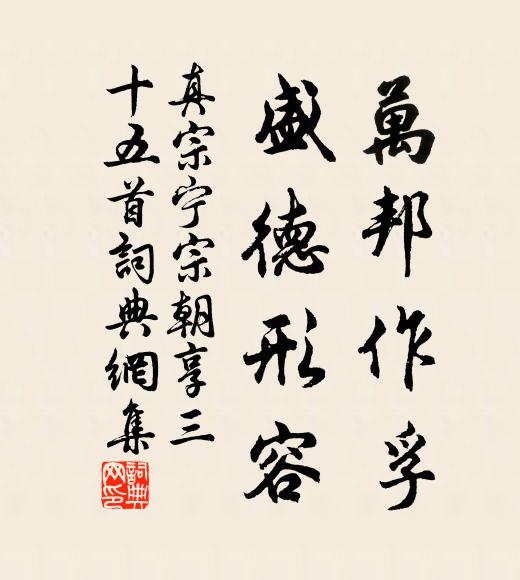 萬邦作孚
盛德形容
真宗宁宗朝享三
十五首詞典網集
詞典网印